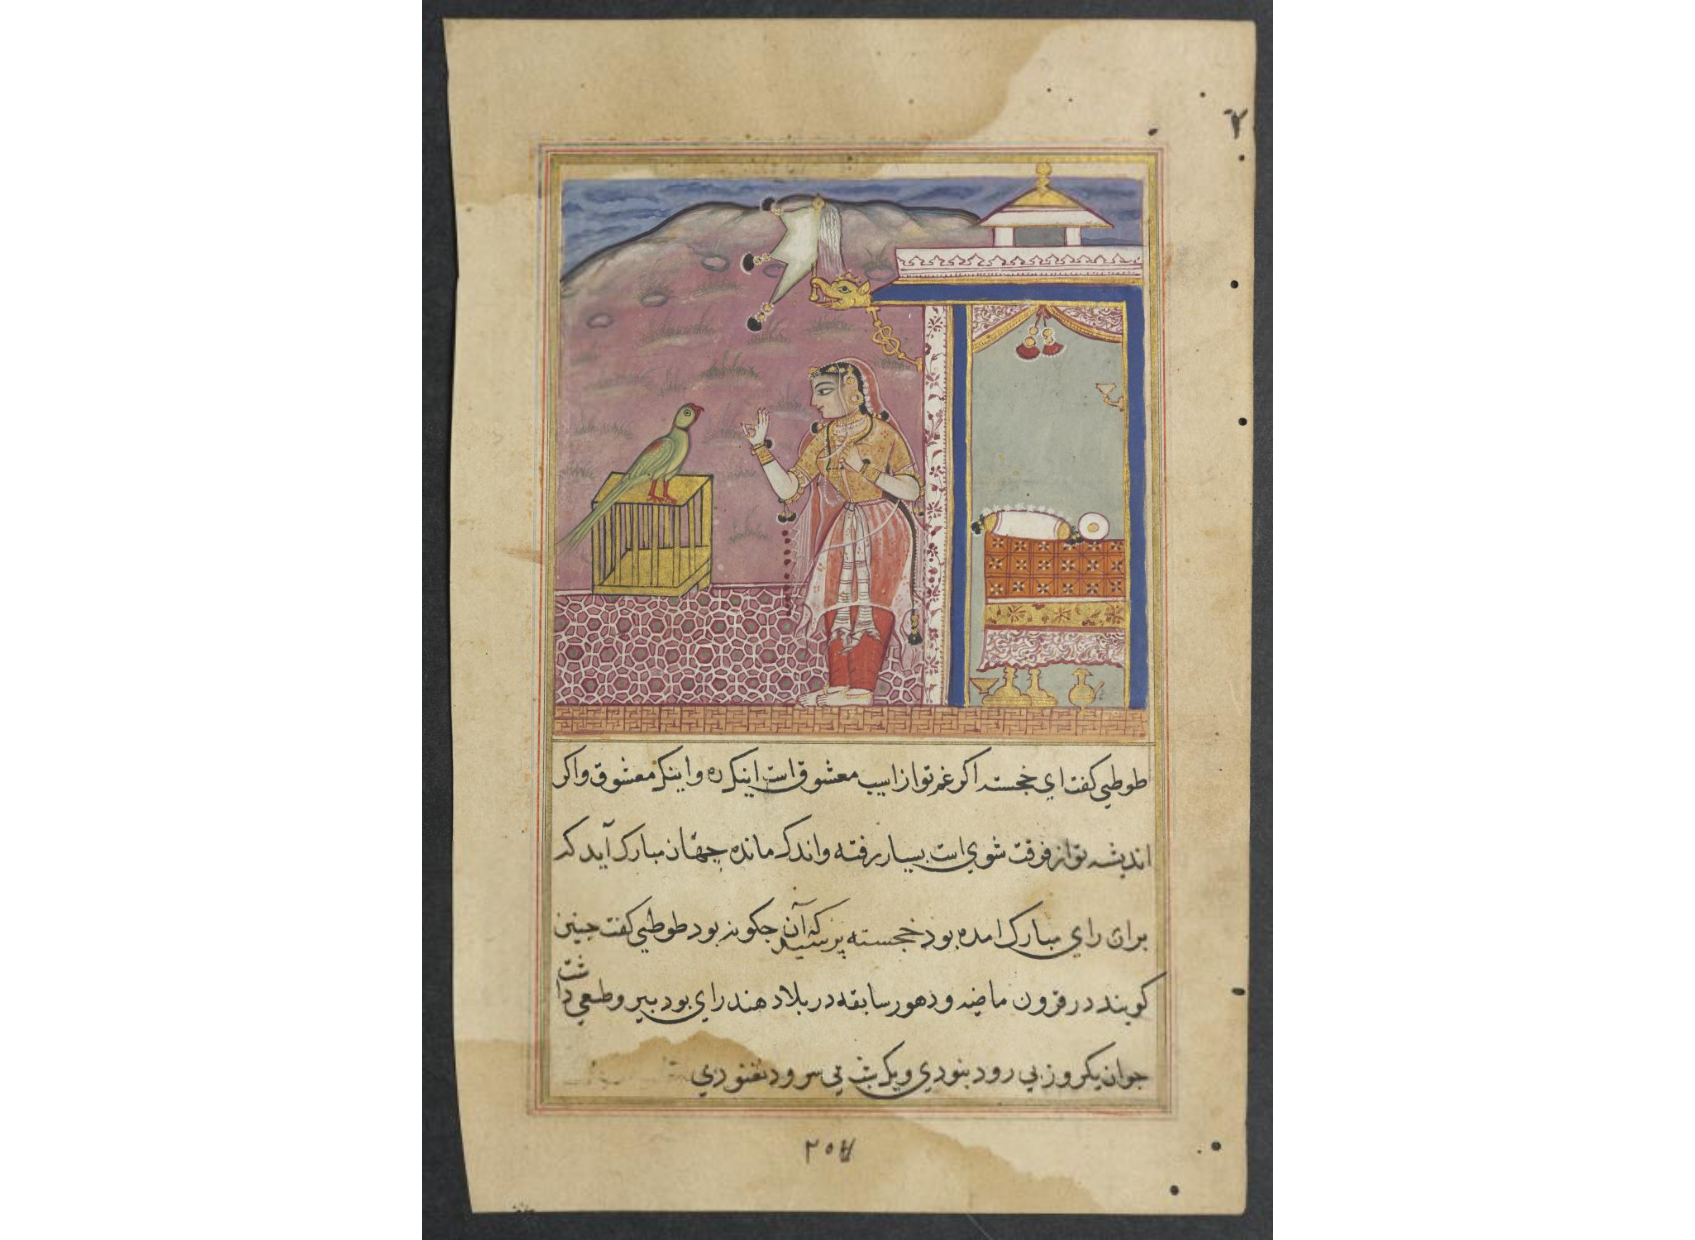 ۲
طوطی کفت ای خجسته اکر غم تو از اسیب معشوق است اینک ره و اینک معشوق و اکر
اندیشه تو از فرقت شوی است بسیار رفته و اندک مانده جهان مبارک آید که
برای رای مبارک امده بود خجسته پرسید که آن جکونه بود طوطی کفت جنین
کویند در قرون ماضیه و دهور سابقه در بلاد هند رای بود پیر و طبعی داشت
جوان یکروز بی رود بنودی و یک شب بی سرود نغنودی